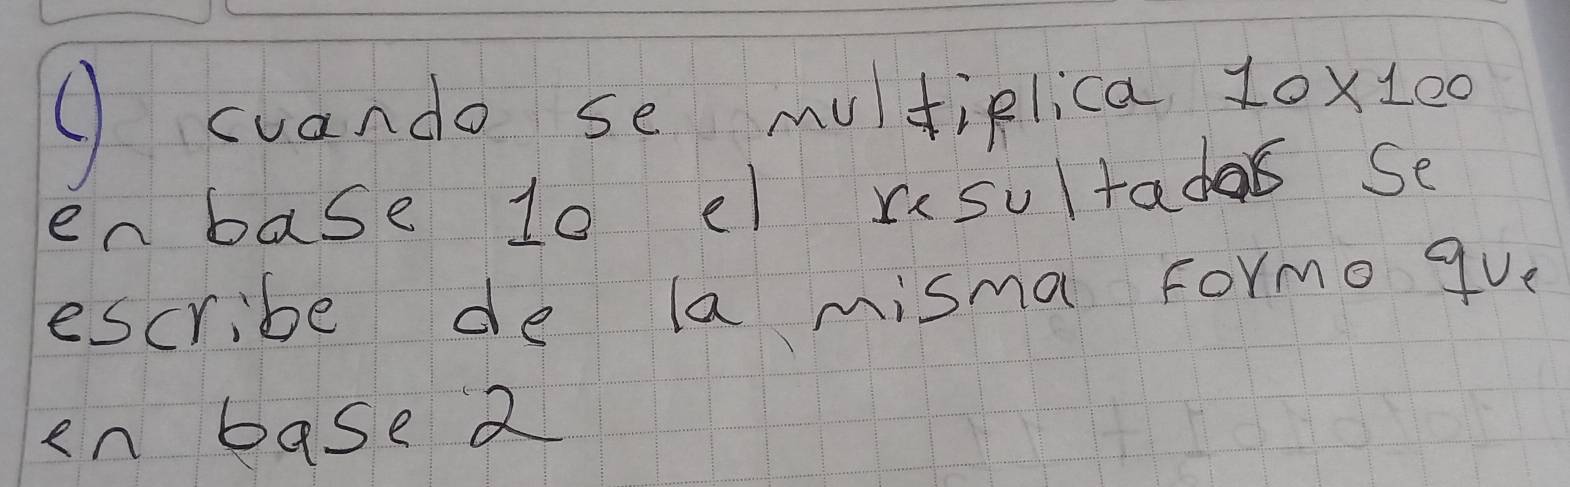 9) cuando se multiplica 10x100
en base 10 el resultados se
escribe de la misma formo que
en base 2